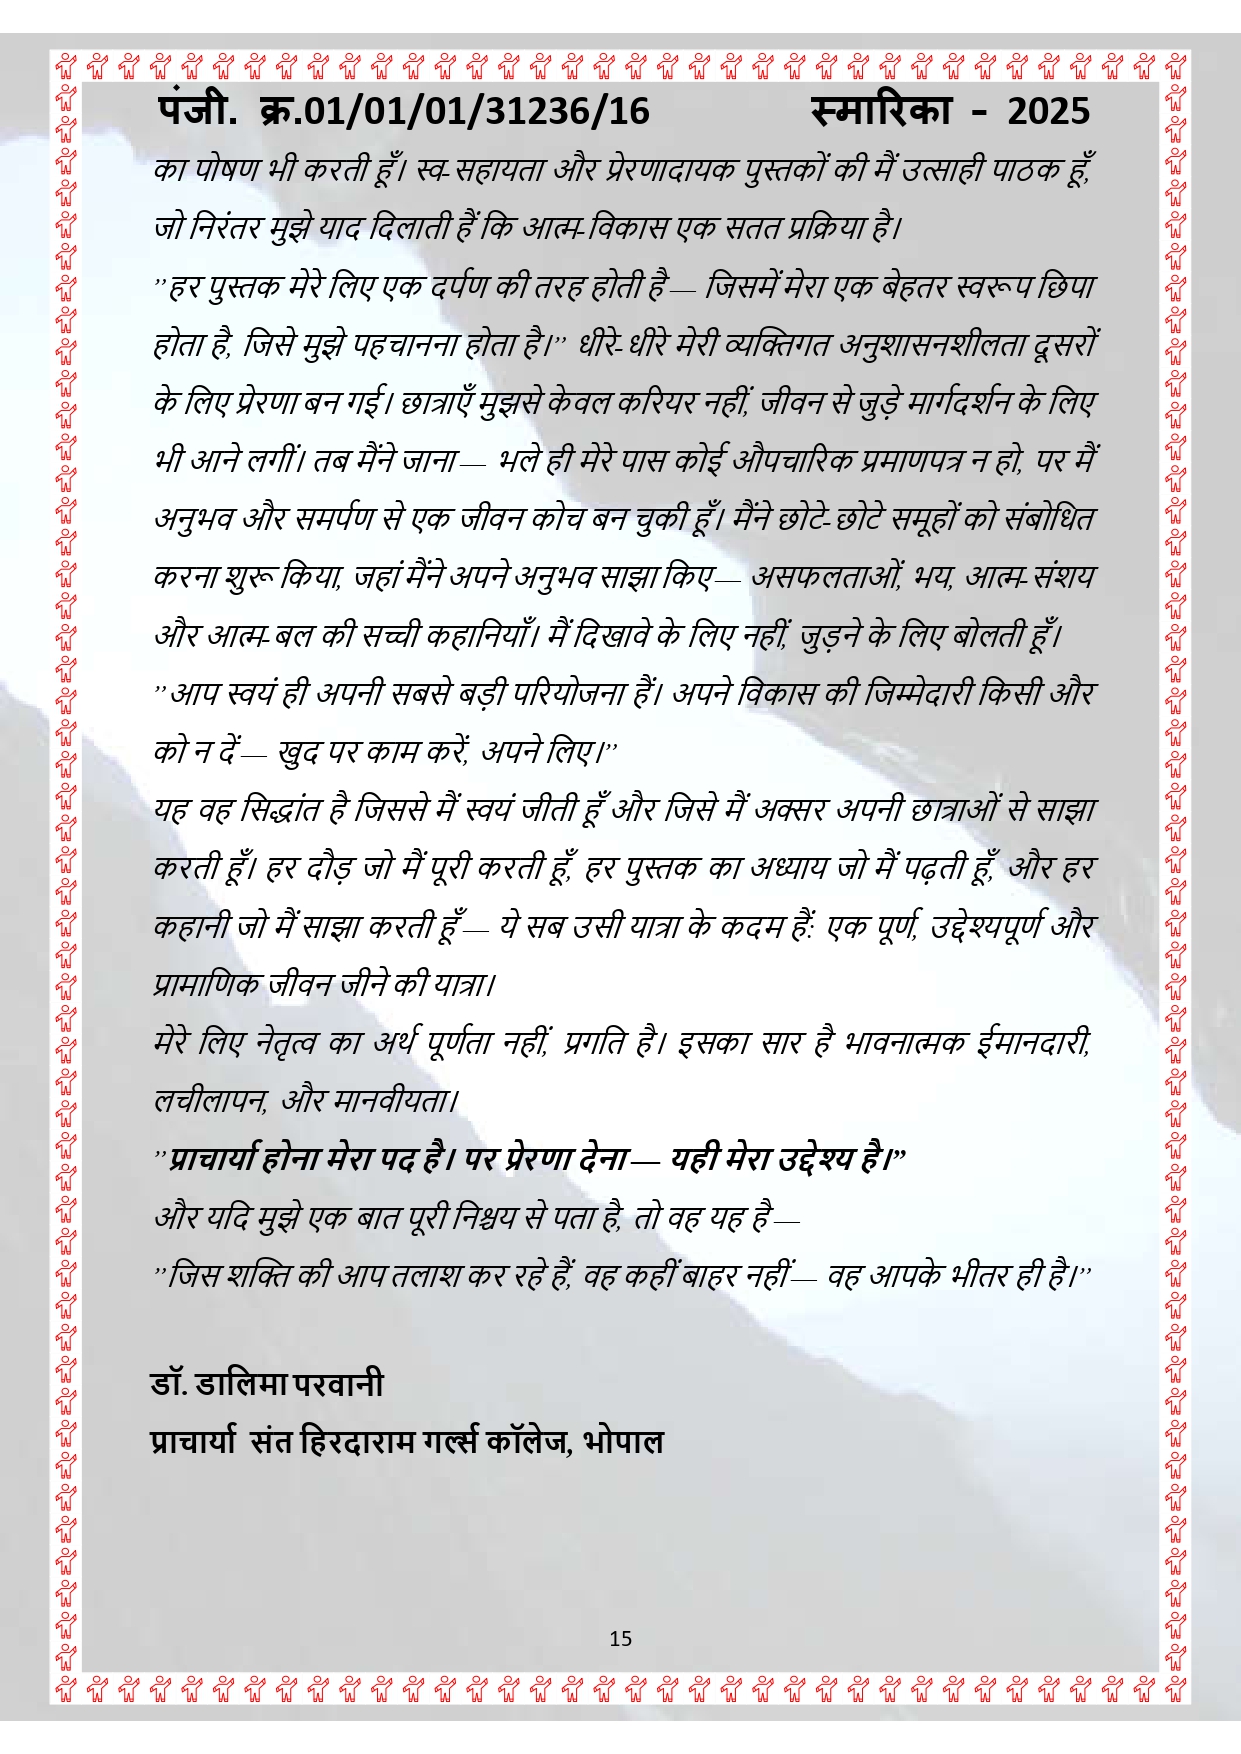 पंजी. क्र.01/01/01/31236/16 स्मारिका - 2025
का पोषण भी करती हूँ। स्व-सहायता और प्रेरणादायक पुस्तकों की मैं उत्साही पाठक हूँ,
जो निरंतर मुझे याद दिलाती हैं कि आत्म-विकास एक सतत प्रक्रिया है।
”हर पुस्तक मेरे लिए एक दर्पण की तरह होती है — जिसमें मेरा एक बेहतर स्वरूप छिपा
होता है, जिसे मुझे पहचानना होता है।” धीरे-धीरे मेरी व्यक्तिगत अनुशासनशीलता दूसरों
के लिए प्रेरणा बन गई। छात्राएँ मुझसे केवल करियर नहीं, जीवन से जुड़े मार्गदर्शन के लिए
भी आने लगीं। तब मैंने जाना — भले ही मेरे पास कोई औपचारिक प्रमाणपत्र न हो, पर मैं
अनुभव और समर्पण से एक जीवन कोच बन चुकी हूँ। मैंने छोटे-छोटे समूहों को संबोधित
करना शुरू किया, जहां मैंने अपने अनुभव साझा किए — असफलताओं, भय, आत्म-संशय
और आत्म-बल की सच्ची कहानियाँ। मैं दिखावे के लिए नहीं, जुड़ने के लिए बोलती हूँ।
”आप स्वयं ही अपनी सबसे बड़ी परियोजना हैं। अपने विकास की जिम्मेदारी किसी और
को न दें — खुद पर काम करें, अपने लिए।”
यह वह सिद्धांत है जिससे मैं स्वयं जीती हूँ और जिसे मैं अक्सर अपनी छात्राओं से साझा
करती हूँ। हर दौड़ जो मैं पूरी करती हूँ, हर पुस्तक का अध्याय जो मैं पढ़ती हूँ, और हर
कहानी जो मैं साझा करती हूँ — ये सब उसी यात्रा के कदम हैं: एक पूर्ण, उद्देश्यपूर्ण और
प्रामाणिक जीवन जीने की यात्रा।
मेरे लिए नेतृत्व का अर्थ पूर्णता नहीं, प्रगति है। इसका सार है भावनात्मक ईमानदारी,
लचीलापन, और मानवीयता।
”प्राचार्या होना मेरा पद है। पर प्रेरणा देना — यही मेरा उद्देश्य है।”
और यदि मुझे एक बात पूरी निश्चय से पता है, तो वह यह है —
”जिस शक्ति की आप तलाश कर रहे हैं, वह कहीं बाहर नहीं — वह आपके भीतर ही है।”
डॉ. डालिमा परवानी
प्राचार्या संत हिरदाराम गर्ल्स कॉलेज, भोपाल
15